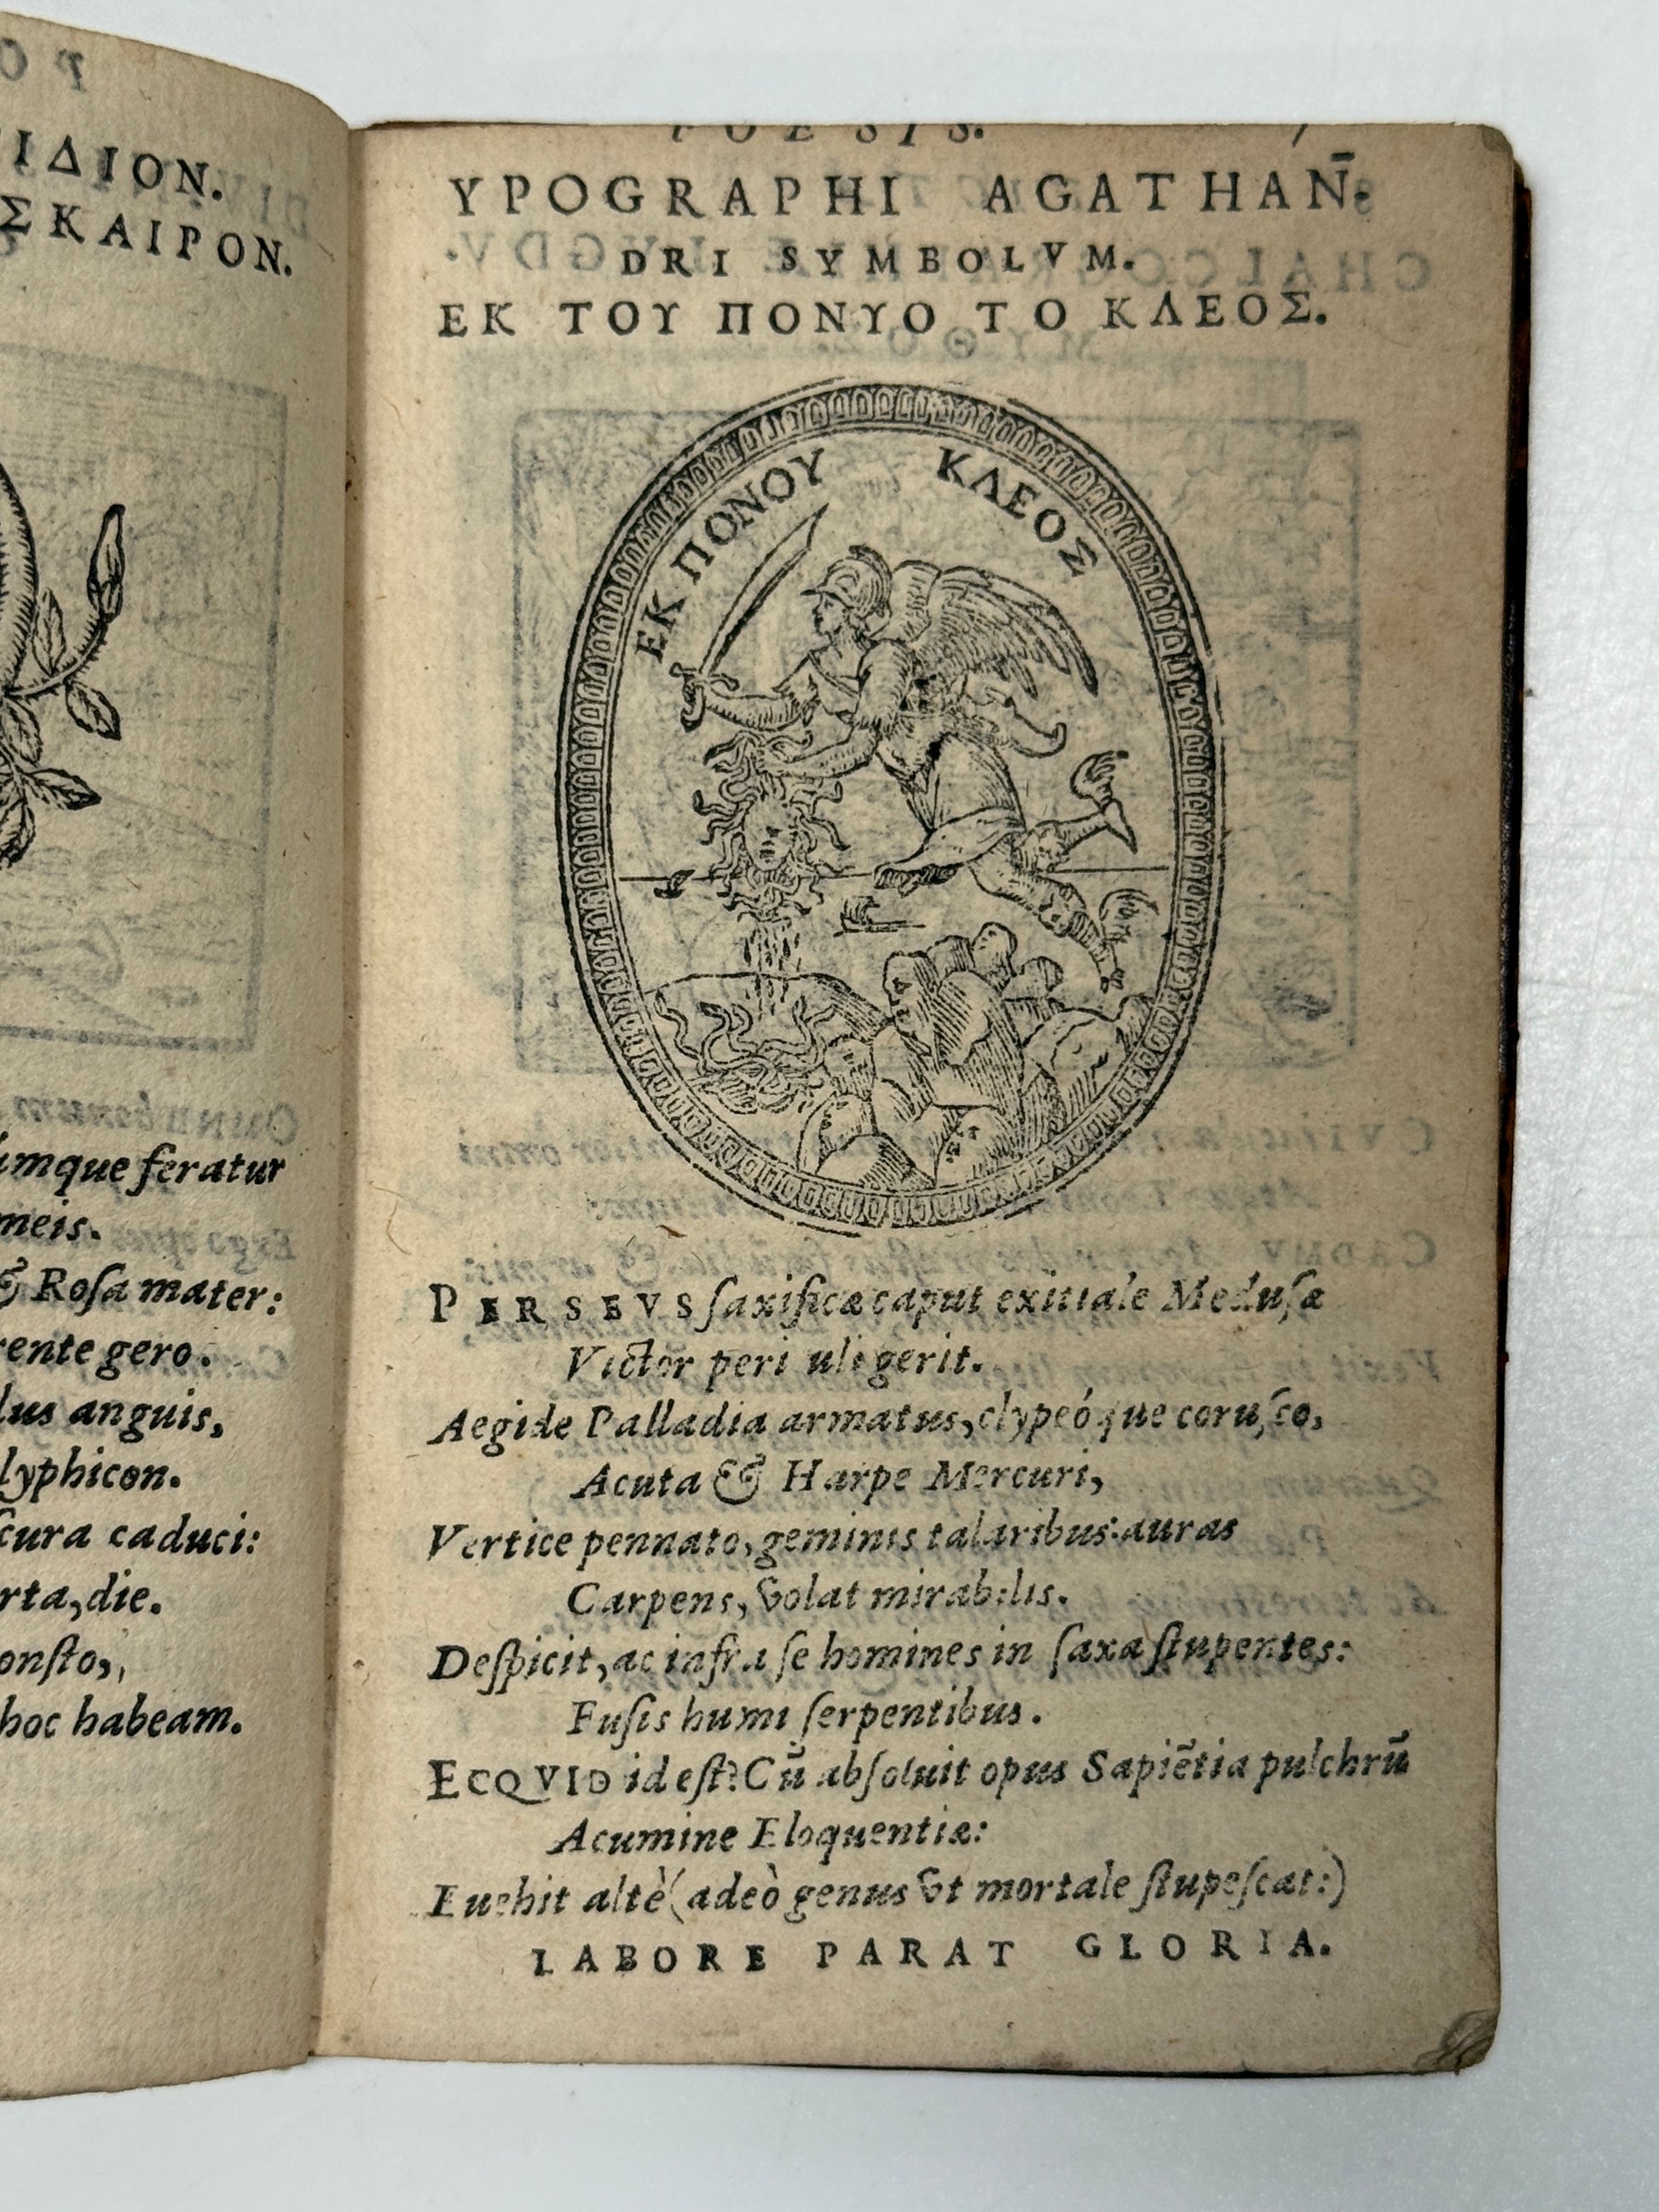 ΙΔΙΟΝ.
ΣΚΑΙΡΟΝ.
imque feratur
meis.
& Roſa mater:
rente gero.
lus anguis,
lyphicon.
cura caduci:
rta, die.
onſto,
hoc habeam.
POESIS. 7
YPOGRAPHI AGATHAN̄-
DRI SYMBOLVM.
ΕΚ ΤΟΥ ΠΟΝΥΟ ΤΟ ΚΛΕΟΣ.
ΕΚ ΠΟΝΟΥ ΚΛΕΟΣ
PERSEVS ſaxificæ caput exitiale Meduſæ
Victor peri uli gerit.
Aegide Palladia armatus, clypeóque coruſco,
Acuta & Harpe Mercuri,
Vertice pennato, geminis talaribus: auras
Carpens, volat mirabilis.
Deſpicit, ac infra ſe homines in ſaxa ſtupentes:
Fuſis humi ſerpentibus.
ECQVID id eſt? Cū abſoluit opus Sapiētia pulchrū
Acumine Eloquentiæ:
Euehit altè (adeò genus vt mortale ſtupeſcat:)
LABORE PARAT GLORIA.